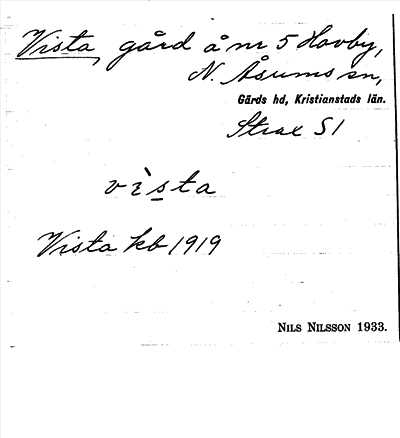 Vista, gård å nr 5 Hovby,
N. Åsums sn,
Gärds hd, Kristianstads län.
Strax Sl
vìsta
Vista kb 1919
NILS NILSSON 1933.